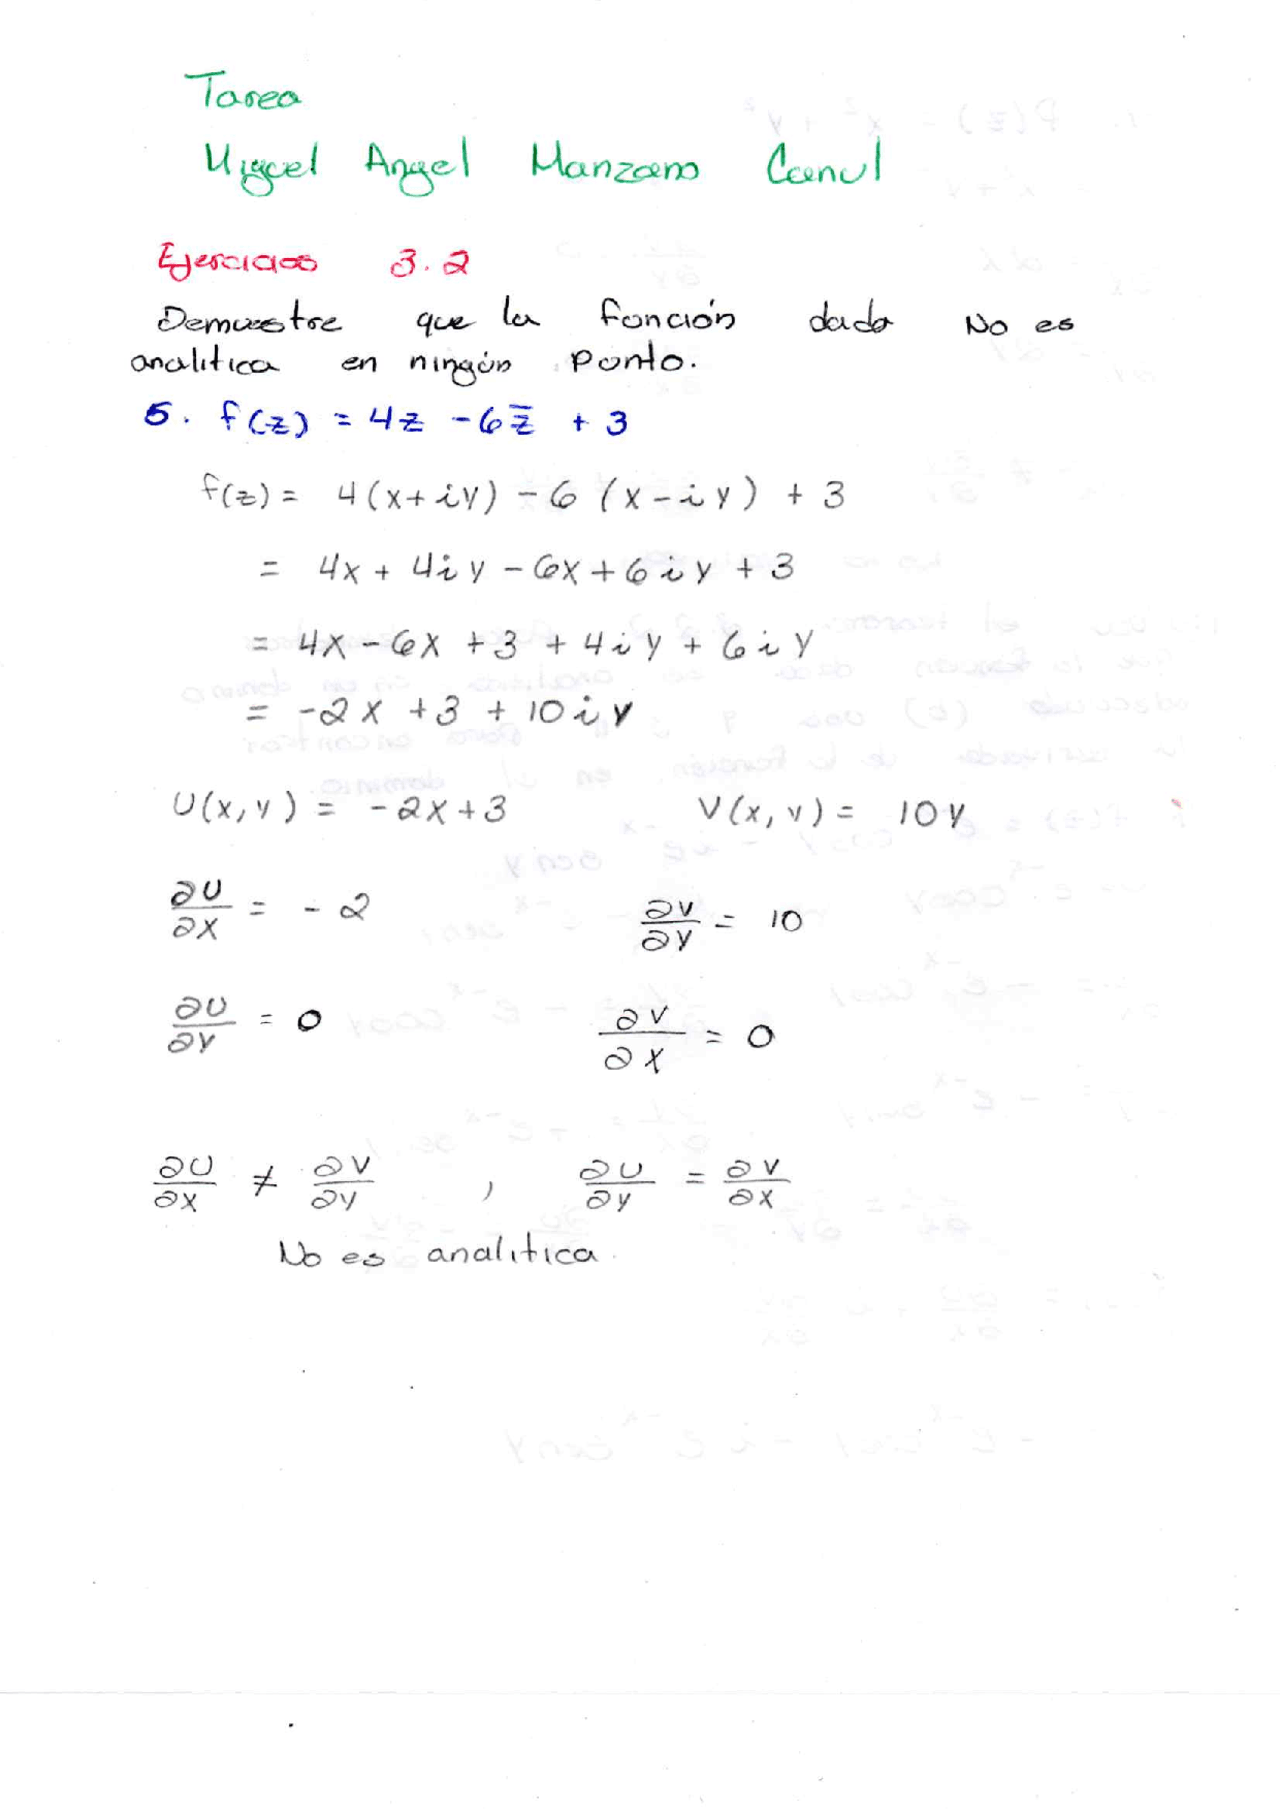 Tarea
Miguel Angel Manzano Canul
Ejercicios 3.2
Demuestre que la función dada No es
analitica en ningún Punto.
5. f(z) = 4z - 6z̅ + 3
f(z) = 4(x+iy) - 6 (x-iy) + 3
= 4x + 4iy - 6x + 6iy + 3
= 4x - 6x + 3 + 4iy + 6iy
= -2x + 3 + 10iy
U(x,y) = -2x+3 V(x,y) = 10y
∂U/∂x = -2 ∂v/∂y = 10
∂U/∂y = 0 ∂v/∂x = 0
∂U/∂x ≠ ∂v/∂y , ∂U/∂y = ∂v/∂x
No es analitica.